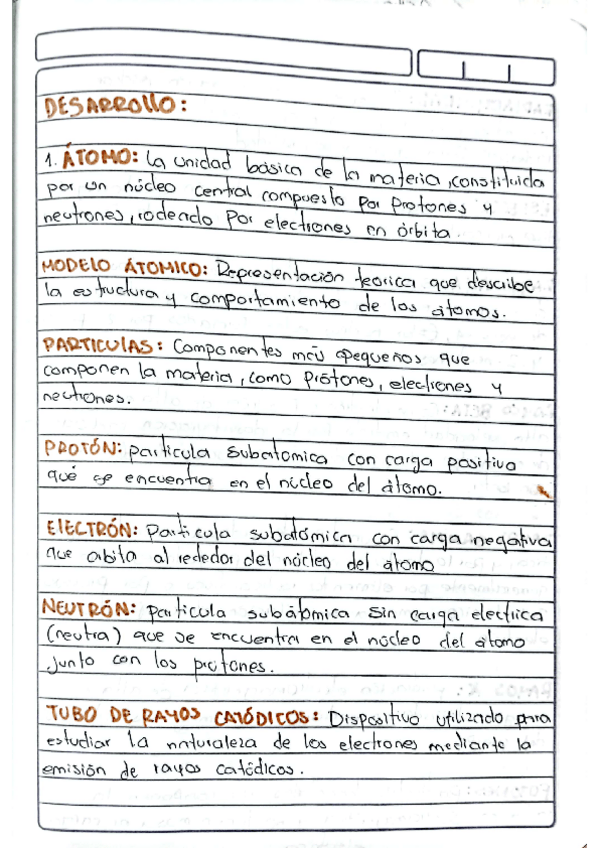 DESARROLLO:
1. ÁTOMO: La unidad básica de la materia, constituida
por un núcleo central compuesto por protones y
neutrones, rodeado por electrones en órbita.
MODELO ÁTOMICO: Representación teorica que describe
la estructura y comportamiento de los átomos.
PARTICULAS: Componentes más pequeños que
componen la materia, como prótones, electrones y
neutrones.
PROTÓN: particula subatomica con carga positiva
qué se encuentra en el núcleo del átomo.
ElECTRÓN: Particula subatómica con carga negativa
que orbita al rededor del núcleo del átomo
NEUTRÓN: particula subátomica sin carga electrica
(neutra) que se encuentra en el núcleo del átomo
junto con los protones.
TUBO DE RAYOS CATÓDICOS: Dispositivo utilizado para
estudiar la naturaleza de los electrones mediante la
emisión de rayos catódicos.